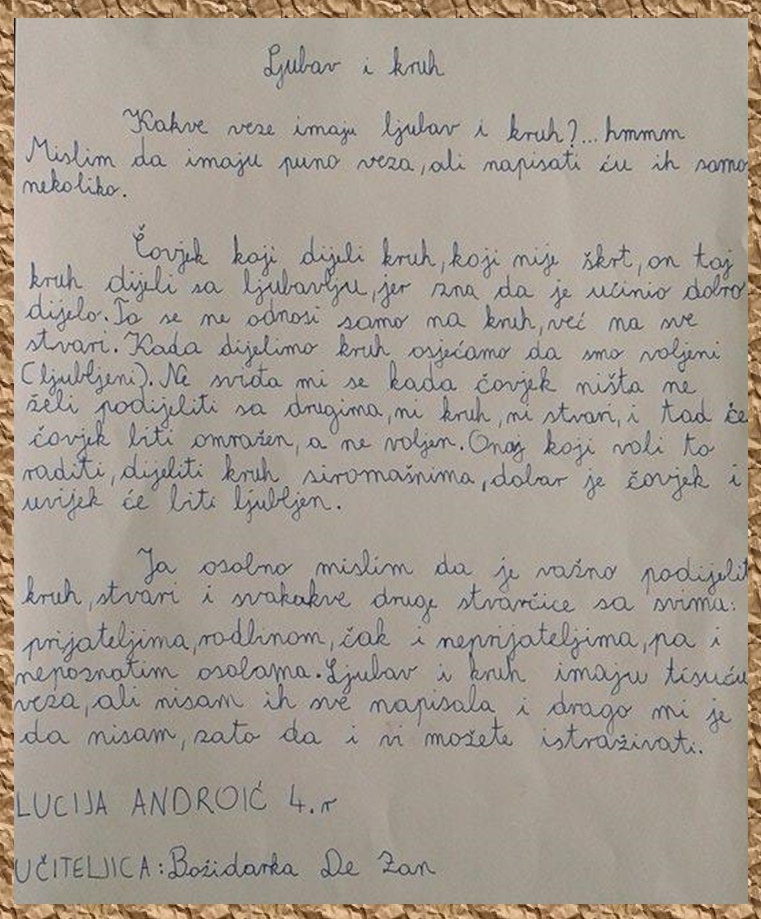 Ljubav i kruh
Kakve veze imaju ljubav i kruh?...hmmm
Mislim da imaju puno veza, ali napisati ću ih samo
nekoliko.
Čovjek koji dijeli kruh, koji nije škrt, on taj
kruh dijeli sa ljubavlju, jer zna da je učinio dobro
dijelo. To se ne odnosi samo na kruh, već na sve
stvari. Kada dijelimo kruh osjećamo da smo voljeni
(ljubljeni). Ne sviđa mi se kada čovjek ništa ne
želi podijeliti sa drugima, ni kruh, ni stvari, i tad će
čovjek biti omražen, a ne voljen. Onaj koji voli to
raditi, dijeliti kruh siromašnima, dobar je čovjek i
uvijek će biti ljubljen.
Ja osobno mislim da je važno podijelit
kruh, stvari i svakakve druge stvarčice sa svima:
prijateljima, rodbinom, čak i neprijateljima, pa i
nepoznatim osobama. Ljubav i kruh imaju tisuću
veza, ali nisam ih sve napisala i drago mi je
da nisam, zato da i vi možete istraživati.
LUCIJA ANDROIĆ 4.r
UČITELJICA: Božidarka De Zan